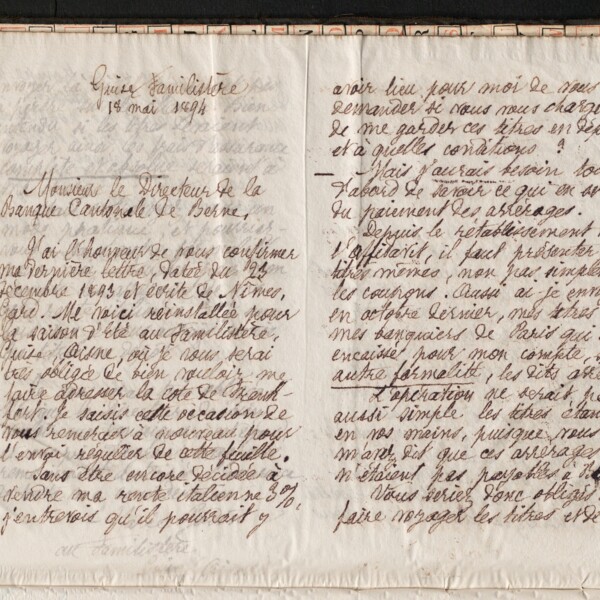 Guise Familistère
18 mai 1894
Monsieur le Directeur de la
Banque Cantonale de Berne,
J'ai l'honneur de vous confirmer
ma dernière lettre, datée du 23
décembre 1893 et écrite de Nîmes,
Gard. Me voici réinstallée pour
la saison d'été au Familistère,
Guise, Aisne, où je vous serai
très obligée de bien vouloir me
faire adresser la cote de Franc-
fort. Je saisis cette occasion de
vous remercier à nouveau pour
l'envoi régulier de cette feuille.
Sans être encore décidée à
vendre ma rente italienne 5%,
j'entrevois qu'il pourrait y
au Familistère.
avoir lieu pour moi de vous
demander si vous vous charg
de me garder ces titres en dép
et à quelles conditions ?
— Mais j'aurais besoin tou
d'abord de savoir ce qui en
du paiement des arrérages.
Depuis le rétablissement
l'affidavit, il faut présenter
titres mêmes, non pas simple
les coupons. Aussi ai-je env
en octobre dernier, mes titres
mes banquiers de Paris qui
encaissés pour mon compte, s
autre formalité, les dits arré
L'opération ne serait p
aussi simple les titres étan
en vos mains, puisque vous
m'avez dit que ces arrérages
n'étaient pas payables à
Vous seriez donc obligé
faire voyager les titres et de